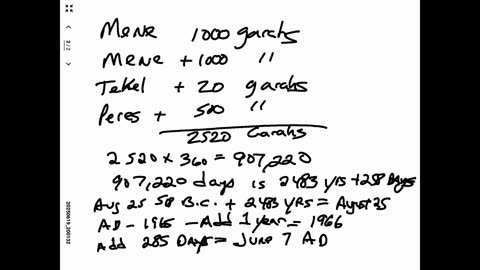 Mene 1000 garahs
Mene + 1000 "
Tekel + 20 garahs
Peres + 500 "
2520 Garahs
2520 x 360 = 907,220
907,220 days is 2483 yrs + 258 Days
Aug 25 58 B.C. + 2483 yrs = August 25
AD - 1965 - Add 1 year = 1966
Add 285 Days = June 7 AD
2/2
20250619_200132